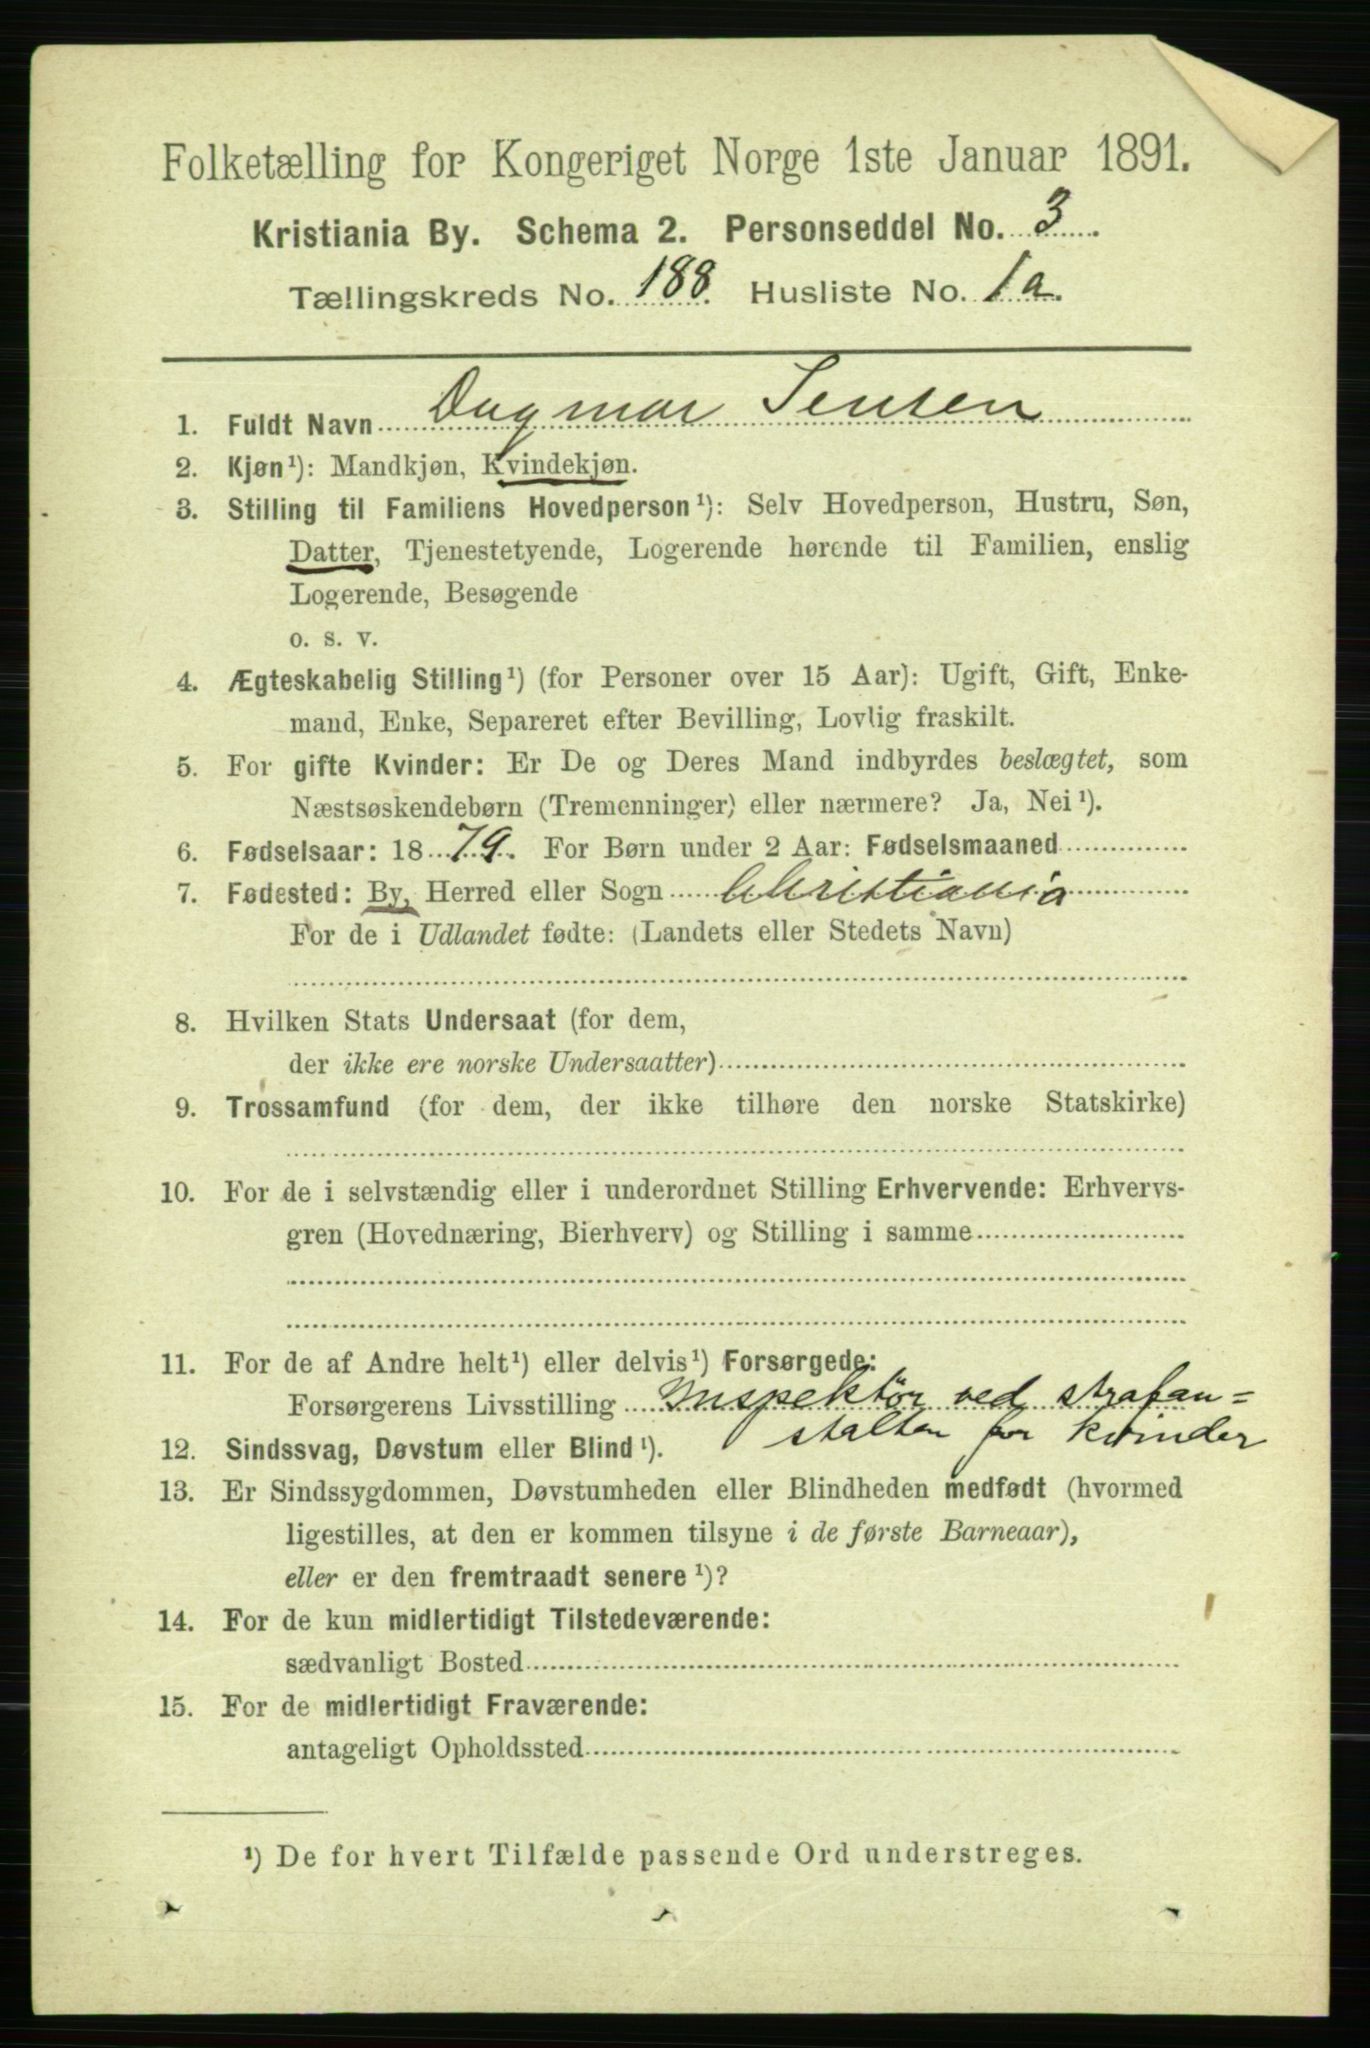 Folketælling for Kongeriget Norge 1ste Januar 1891.
Kristiania By. Schema 2. Personseddel No. 3.
Tællingskreds No. 188. Husliste No. 1a.
1. Fuldt Navn Dagmar Jensen
2. Kjøn¹): Mandkjøn, Kvindekjøn.
3. Stilling til Familiens Hovedperson¹): Selv Hovedperson, Hustru, Søn,
Datter, Tjenestetyende, Logerende hørende til Familien, enslig
Logerende, Besøgende
o. s. v.
4. Ægteskabelig Stilling¹) (for Personer over 15 Aar): Ugift, Gift, Enke-
mand, Enke, Separeret efter Bevilling, Lovlig fraskilt.
5. For gifte Kvinder: Er De og Deres Mand indbyrdes beslægtet, som
Næstsøskendebørn (Tremenninger) eller nærmere? Ja, Nei¹).
6. Fødselsaar: 1879. For Børn under 2 Aar: Fødselsmaaned
7. Fødested: By, Herred eller Sogn Christiania
For de i Udlandet fødte: (Landets eller Stedets Navn)
8. Hvilken Stats Undersaat (for dem,
der ikke ere norske Undersaatter)
9. Trossamfund (for dem, der ikke tilhøre den norske Statskirke)
10. For de i selvstændig eller i underordnet Stilling Erhvervende: Erhvervs-
gren (Hovednæring, Bierhverv) og Stilling i samme
11. For de af Andre helt¹) eller delvis¹) Forsørgede:
Forsørgerens Livsstilling Inspektør ved strafan=
stalten for kvinder
12. Sindssvag, Døvstum eller Blind¹).
13. Er Sindssygdommen, Døvstumheden eller Blindheden medfødt (hvormed
ligestilles, at den er kommen tilsyne i de første Barneaar),
eller er den fremtraadt senere¹)?
14. For de kun midlertidigt Tilstedeværende:
sædvanligt Bosted
15. For de midlertidigt Fraværende:
antageligt Opholdssted
¹) De for hvert Tilfælde passende Ord understreges.